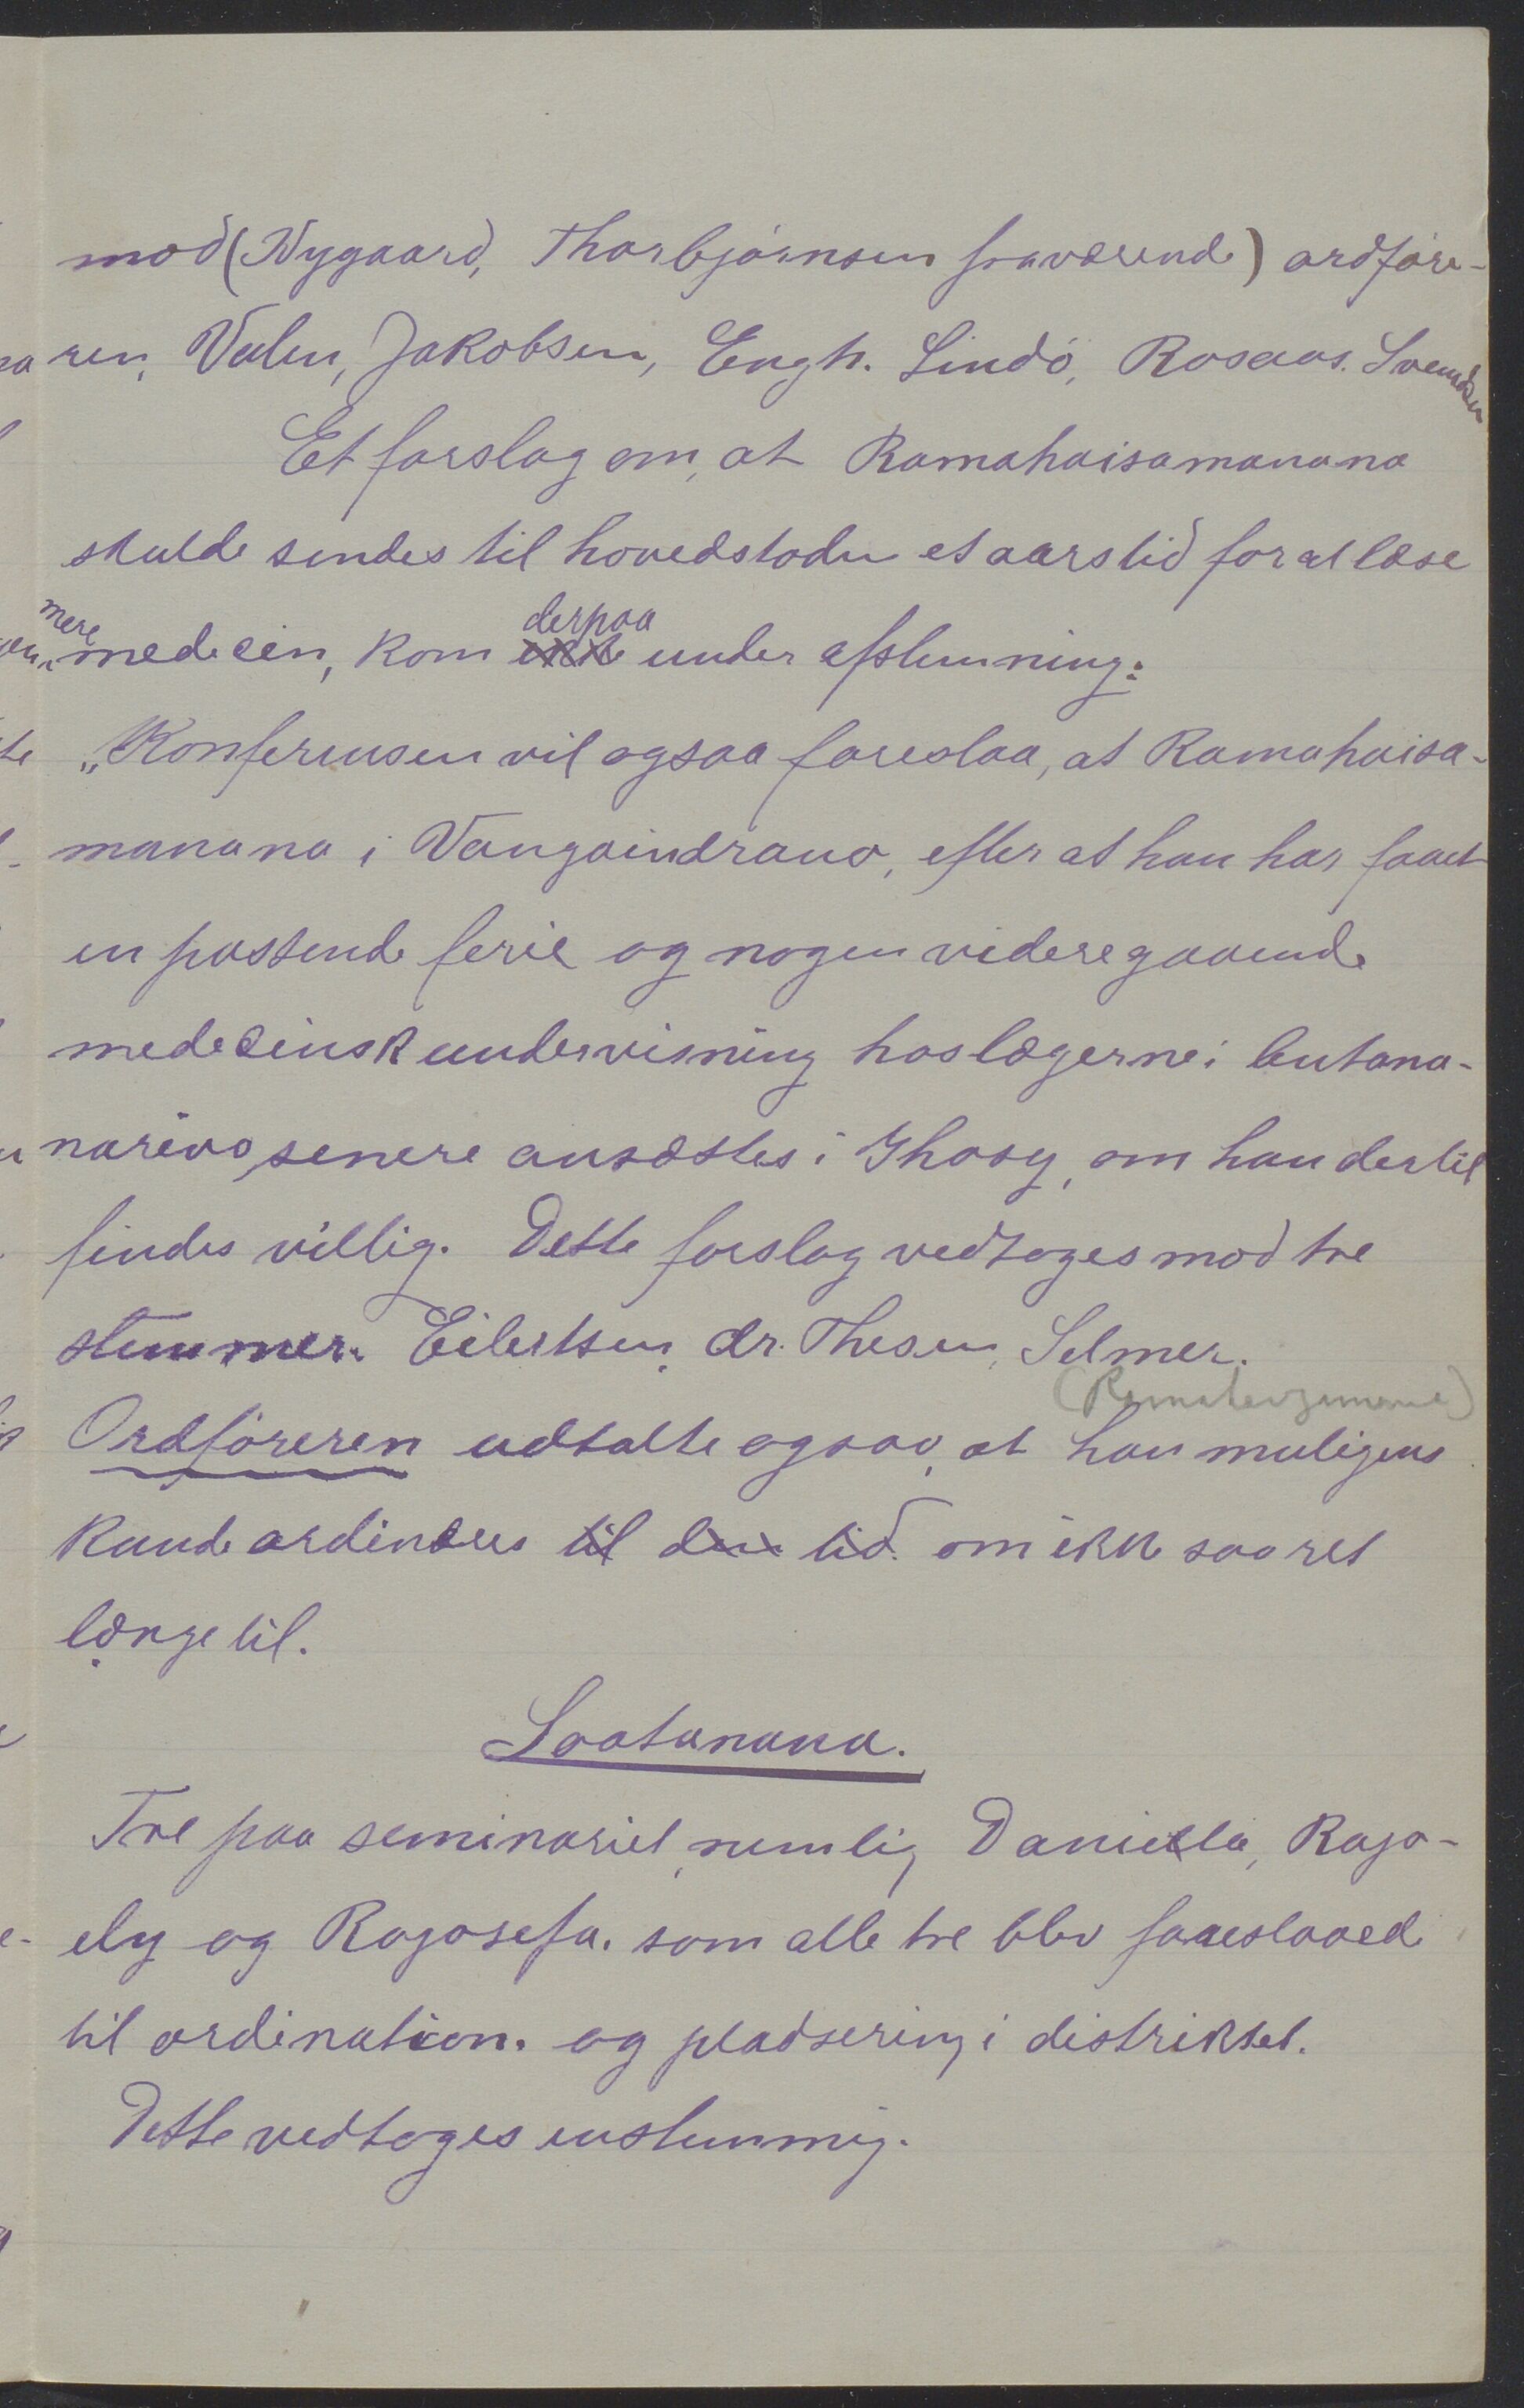 mod (Nygaard, Thorbjørnsen fraværende) ordføre-
ren, Valen, Jakobsen, Engh. Lindö, Rosaas. Svendsen
Et forslag om, at Ramahaisamanana
skulde sendes til hovedstaden et aars tid for at læse
mere medecin, kom ikke derpaa under afstemning:
„Konferensen vil ogsaa foreslaa, at Ramahaisa-
manana i Vangaindrano, efter at han har faaet
en passende ferie og nogen videregaaende
medecinsk undervisning hos lægerne i Antana-
narivo, senere ansættes i Ihosy, om han dertil
findes villig. Dette forslag vedtoges mod tre
stemmer. Eilertsen, dr. Thesen, Selmer.
Ordføreren udtalte ogsaa, at han muligens
kunde ordineres til den tid om ikke saa ret
længe til.
Soatanana.
Tre paa seminariet, nemlig Daniela, Rajo-
ely og Rajosefa. som alle tre blev foreslaaed
til ordination. og pladsering i distriktet.
Dette vedtoges enstemmig.